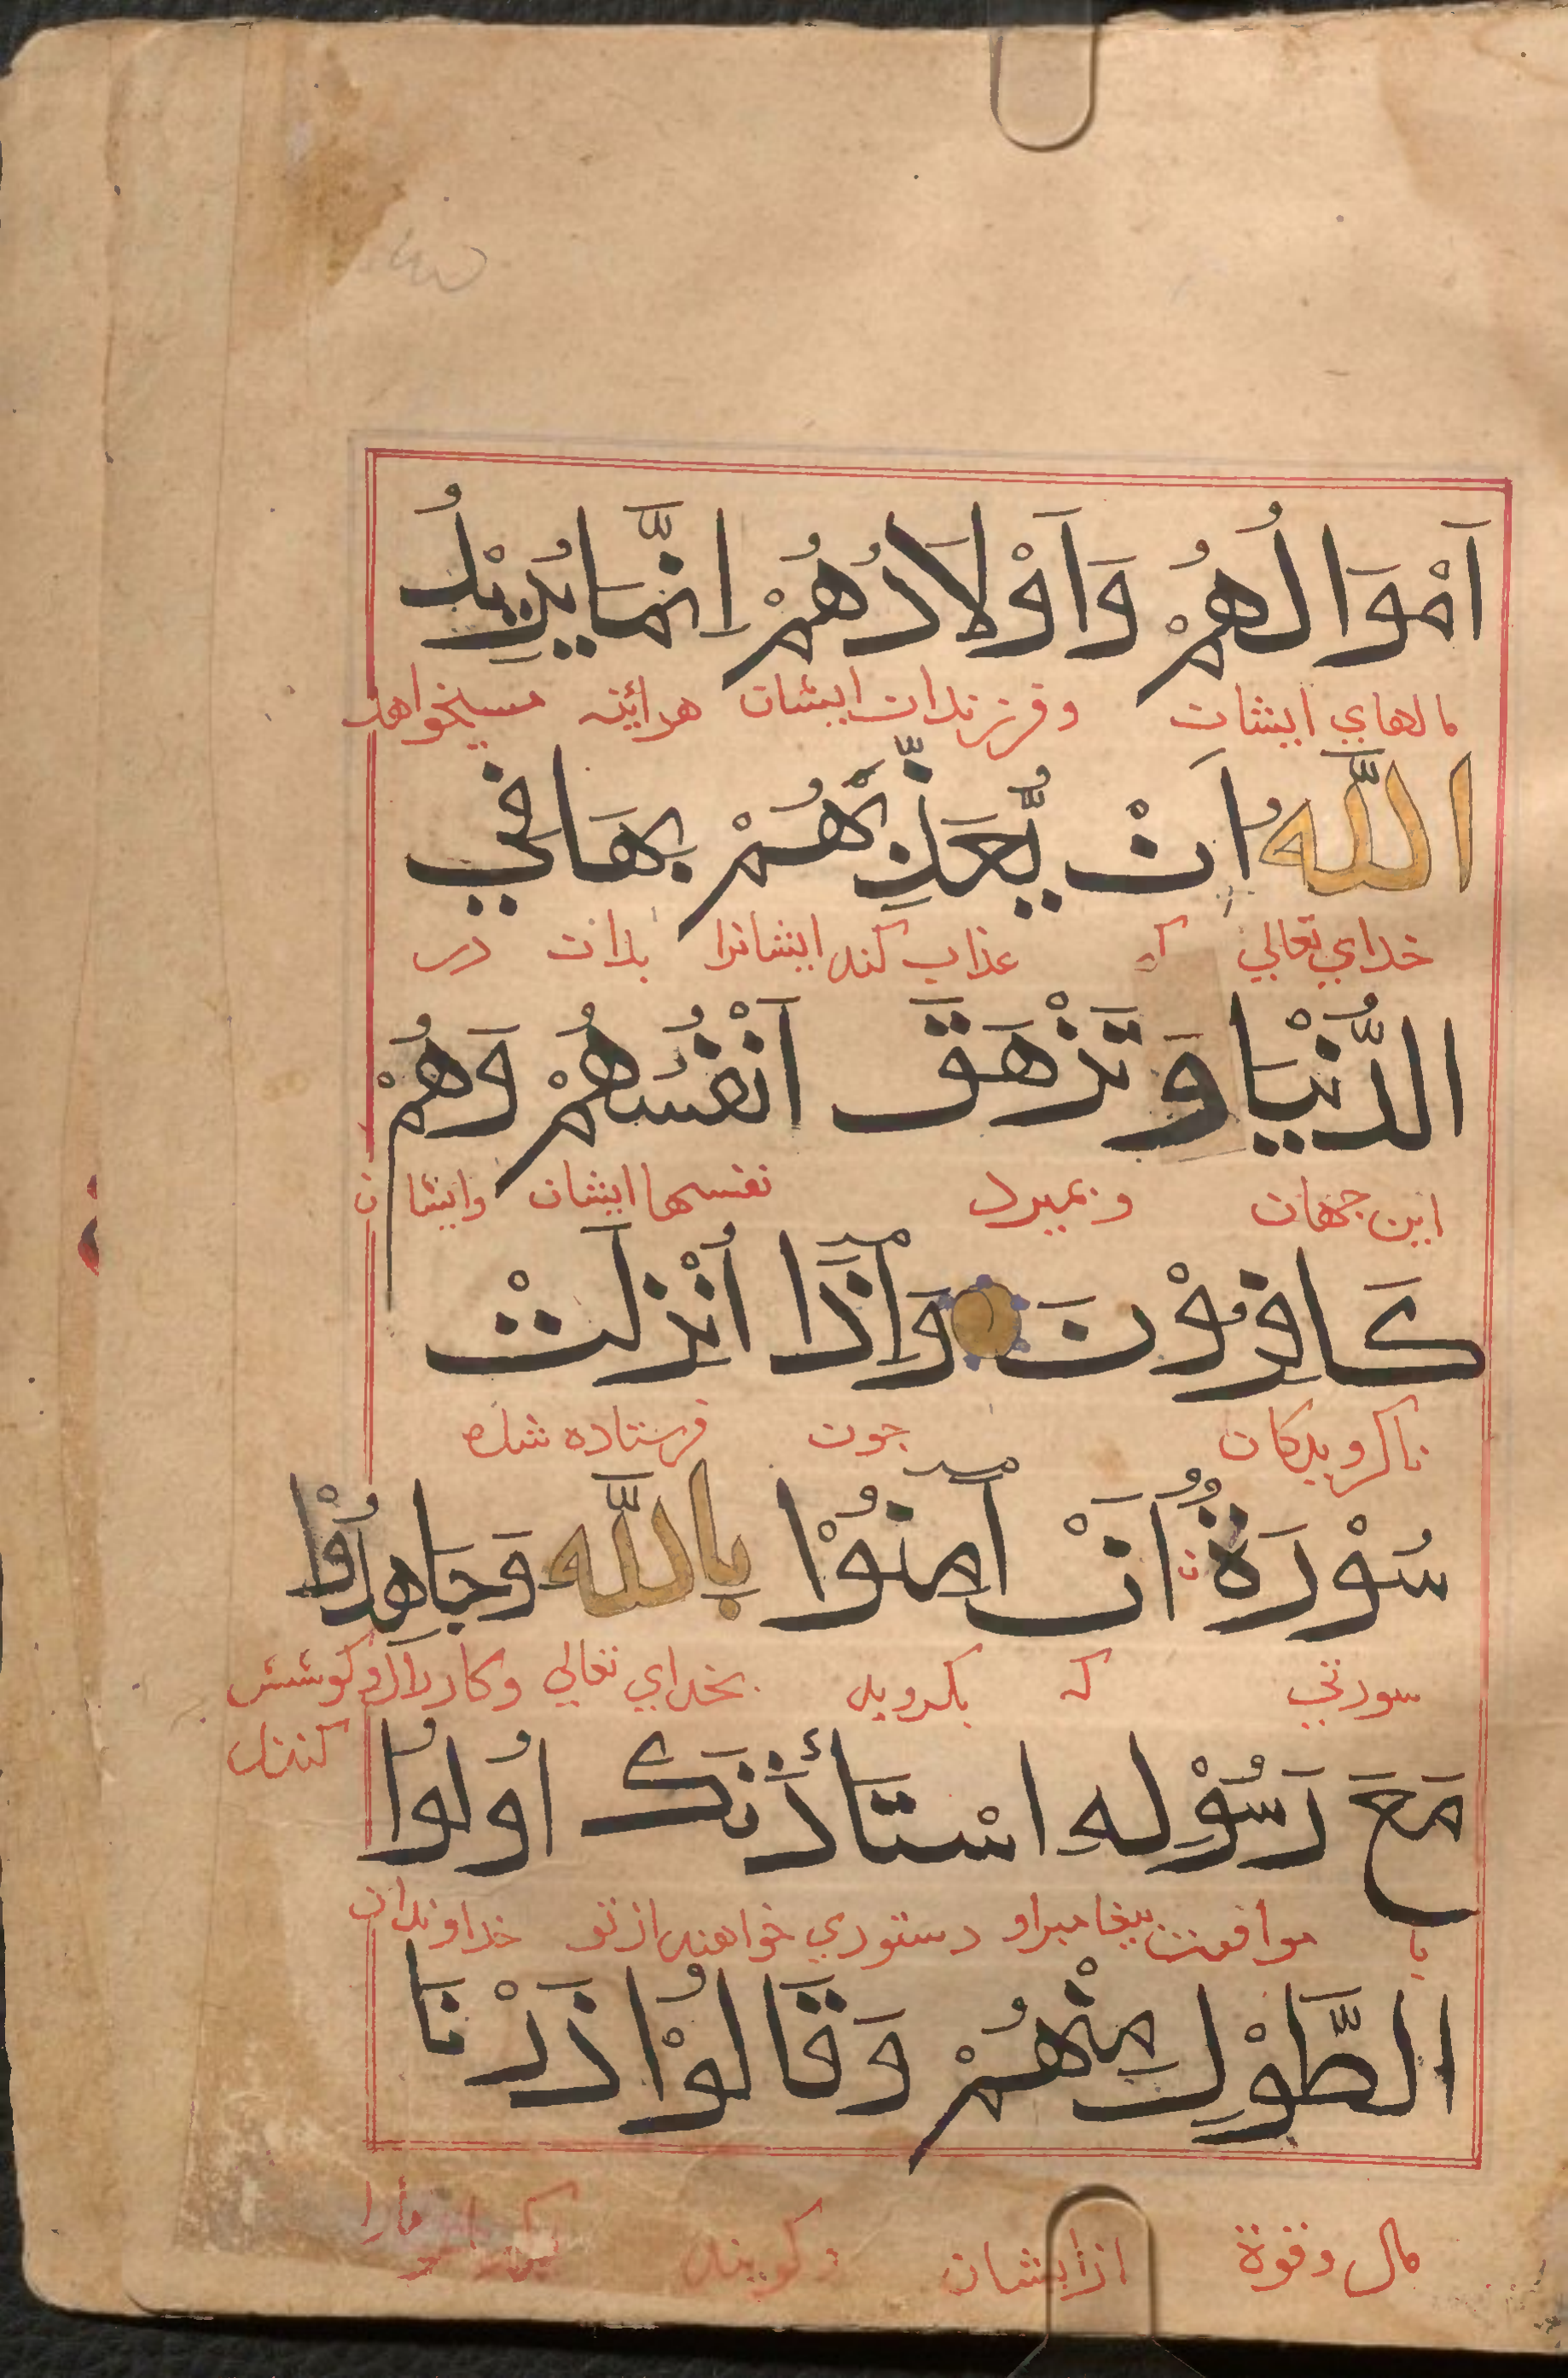 اَمْوَالُهُمْ وَاَوْلَادُهُمْ اِنَّمَا يُرِيْدُ
مالهاي ايشان وفرزندان ايشان هرائينه ميخواهد
اللَّهُ اَنْ يُّعَذِّبَهُمْ بِهَا فِي
خداي تعالي كه عذاب كند ايشانرا بدان در
الدُّنْيَا وَتَزْهَقَ اَنْفُسُهُمْ وَهُمْ
اين جهان وبميرد نفسها ايشان وايشان
كَافِرُوْنَ وَاِذَا اُنْزِلَتْ
ناكرويدكان جون فرستاده شده
سُوْرَةٌ اَنْ اٰمِنُوْا بِاللَّهِ وَجَاهِدُوْا
سورتي كه بكرويد بخداي تعالي وكارزار وكوشش
كنند
مَعَ رَسُوْلِهِ اسْتَأْذَنَكَ اُولُوا
با موافقت پيغامبر او دستوري خواهند از تو خداوندان
الطَّوْلِ مِنْهُمْ وَقَالُوْا ذَرْنَا
مال وقوة از ايشان وكويند مارا